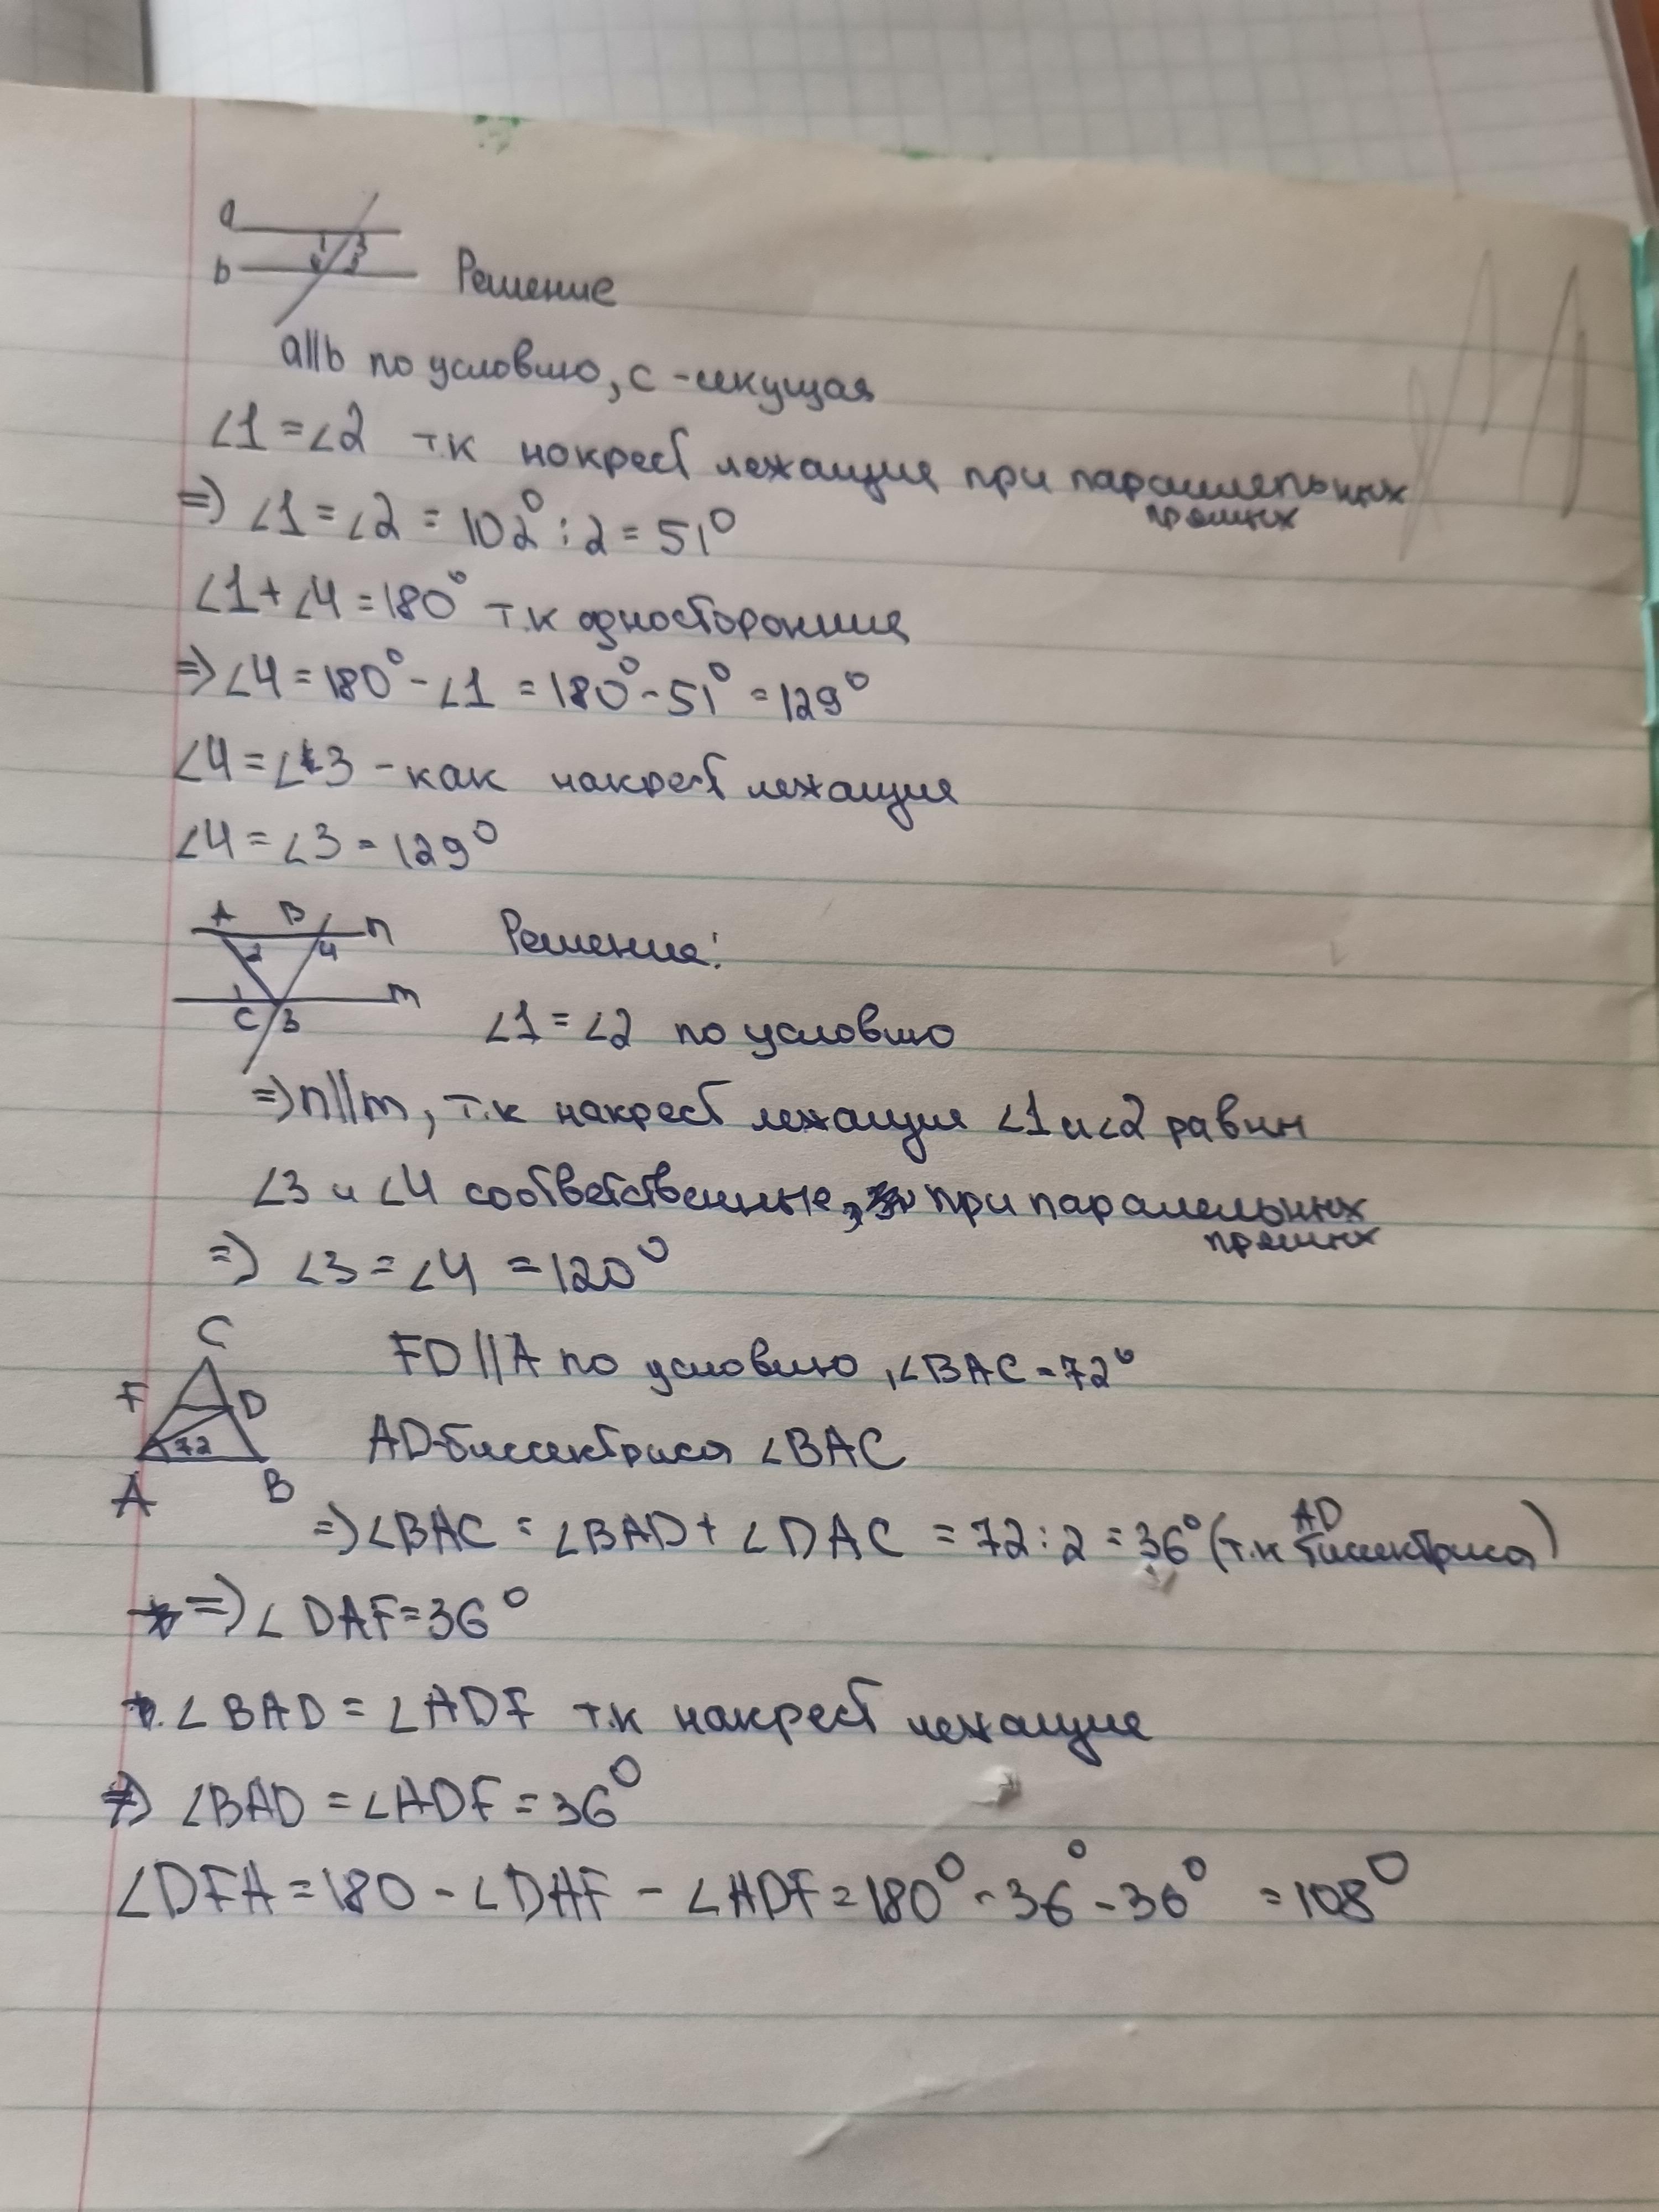 a
1 3
b 4 2 Решение
a||b по условию, с - секущая
∠1 = ∠2 т.к нокрест лежащие при параллельных
прямых
=> ∠1 = ∠2 = 102° : 2 = 51°
∠1 + ∠4 = 180° т.к односторонние
=> ∠4 = 180° - ∠1 = 180° - 51° = 129°
∠4 = ∠3 - как накрест лежащие
∠4 = ∠3 = 129°
A B n Решение:
2 4
1 m
C 3 ∠1 = ∠2 по условию
=> n||m, т.к накрест лежащие ∠1 и ∠2 равны
∠3 и ∠4 соответственные, при паралельных
прямых
=> ∠3 = ∠4 = 120°
C
FD||A по условию, ∠BAC = 72°
F D
72 AD-биссектриса ∠BAC
A B
=> ∠BAC = ∠BAD + ∠DAC = 72 : 2 = 36° (т.к AD биссектриса)
=> ∠DAF = 36°
∠BAD = ∠ADF т.к накрест лежащие
=> ∠BAD = ∠ADF = 36°
∠DFA = 180 - ∠DAF - ∠ADF = 180° - 36° - 36° = 108°